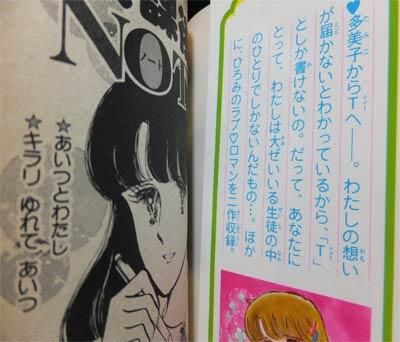 ♥多美子からTへ──。わたしの想い
が届かないとわかっているから、「T」
としか書けないの。だって、あなたに
とって、わたしは大ぜいいる生徒の中
のひとりでしかないんだもの…。ほか
に、ひろみのラブ♡ロマンを二作収録。
NOT
★あいつとわたし
★キラリ ゆれて あいつ